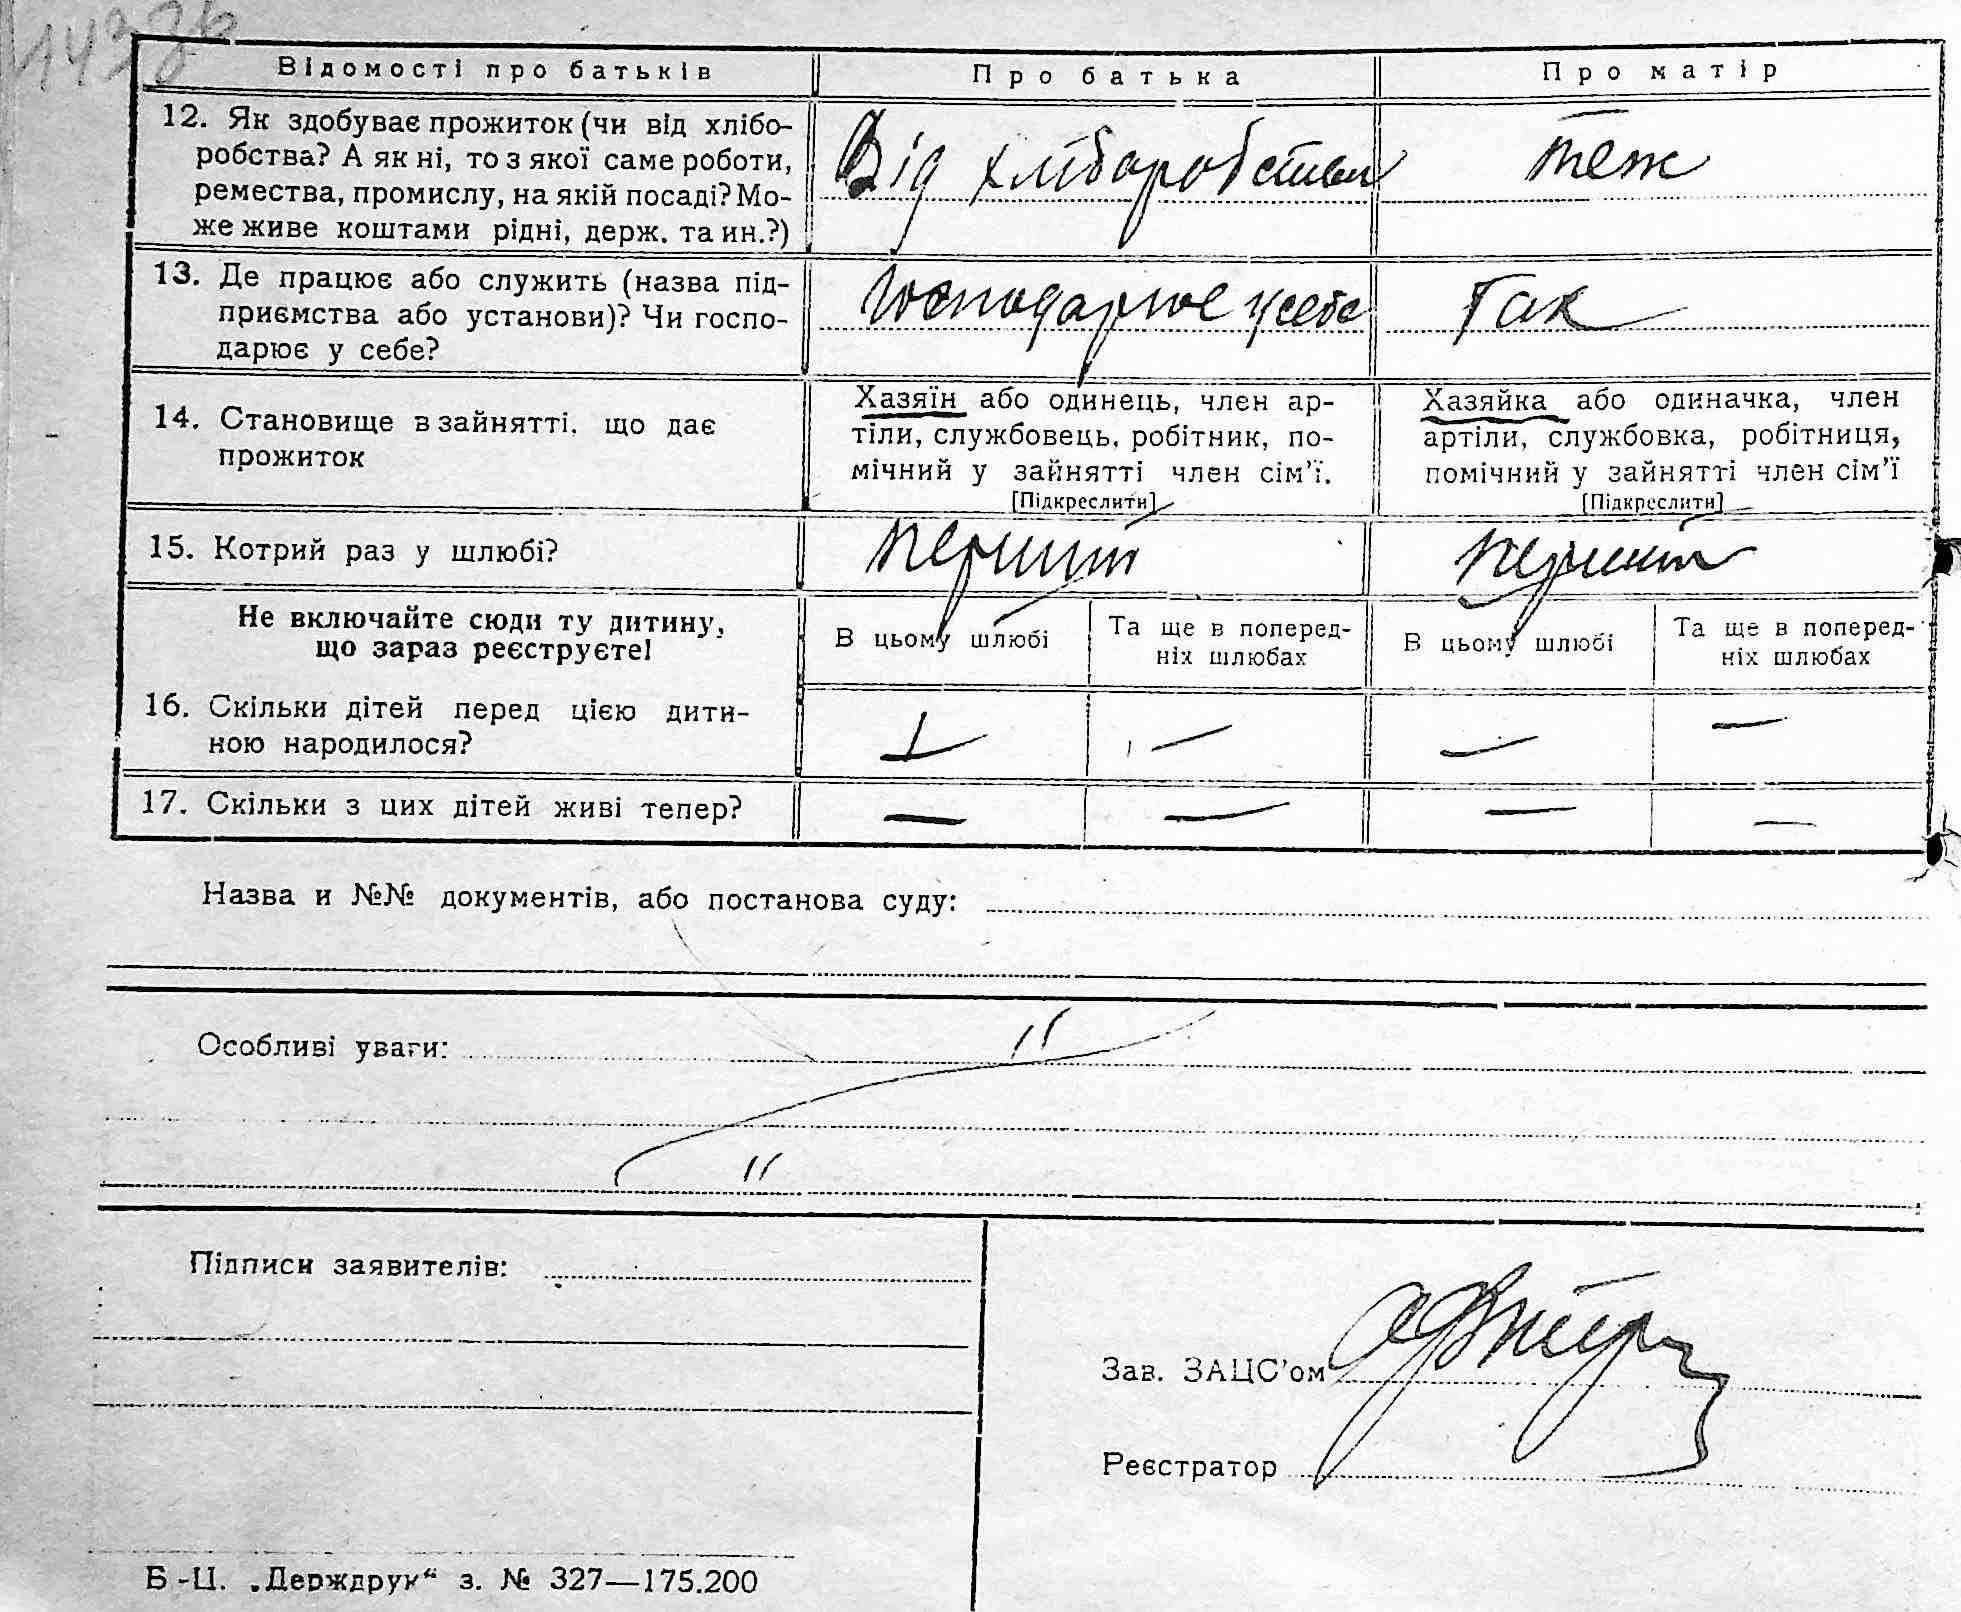 Відомості про батьків Про батька Про матір
12. Як здобуває прожиток (чи від хлібо-
робства? А як ні, то з якої саме роботи,
ремества, промислу, на якій посаді? Мо-
же живе коштами рідні, держ. та ин.?)
Від хліборобства теж
13. Де працює або служить (назва під-
приємства або установи)? Чи госпо-
дарює у себе?
Господарює у себе Так
14. Становище в зайнятті, що дає
прожиток
Хазяїн або одинець, член ар-
тіли, службовець, робітник, по-
мічний у зайнятті член сім'ї.
[Підкреслити]
Хазяйка або одиначка, член
артіли, службовка, робітниця,
помічний у зайнятті член сім'ї
[Підкреслити]
15. Котрий раз у шлюбі? перший перший
Не включайте сюди ту дитину,
що зараз реєструєте!
В цьому шлюбі
Та ще в поперед-
ніх шлюбах
В цьому шлюбі
Та ще в поперед-
ніх шлюбах
16. Скільки дітей перед цією дити-
ною народилося?
— — —
17. Скільки з цих дітей живі тепер? — — — —
Назва и №№ документів, або постанова суду:
Особливі уваги: "
"
Підписи заявителів:
Зав. ЗАЦС'ом
Реєстратор
Б-Ц. „Держдрук“ з. № 327—175.200